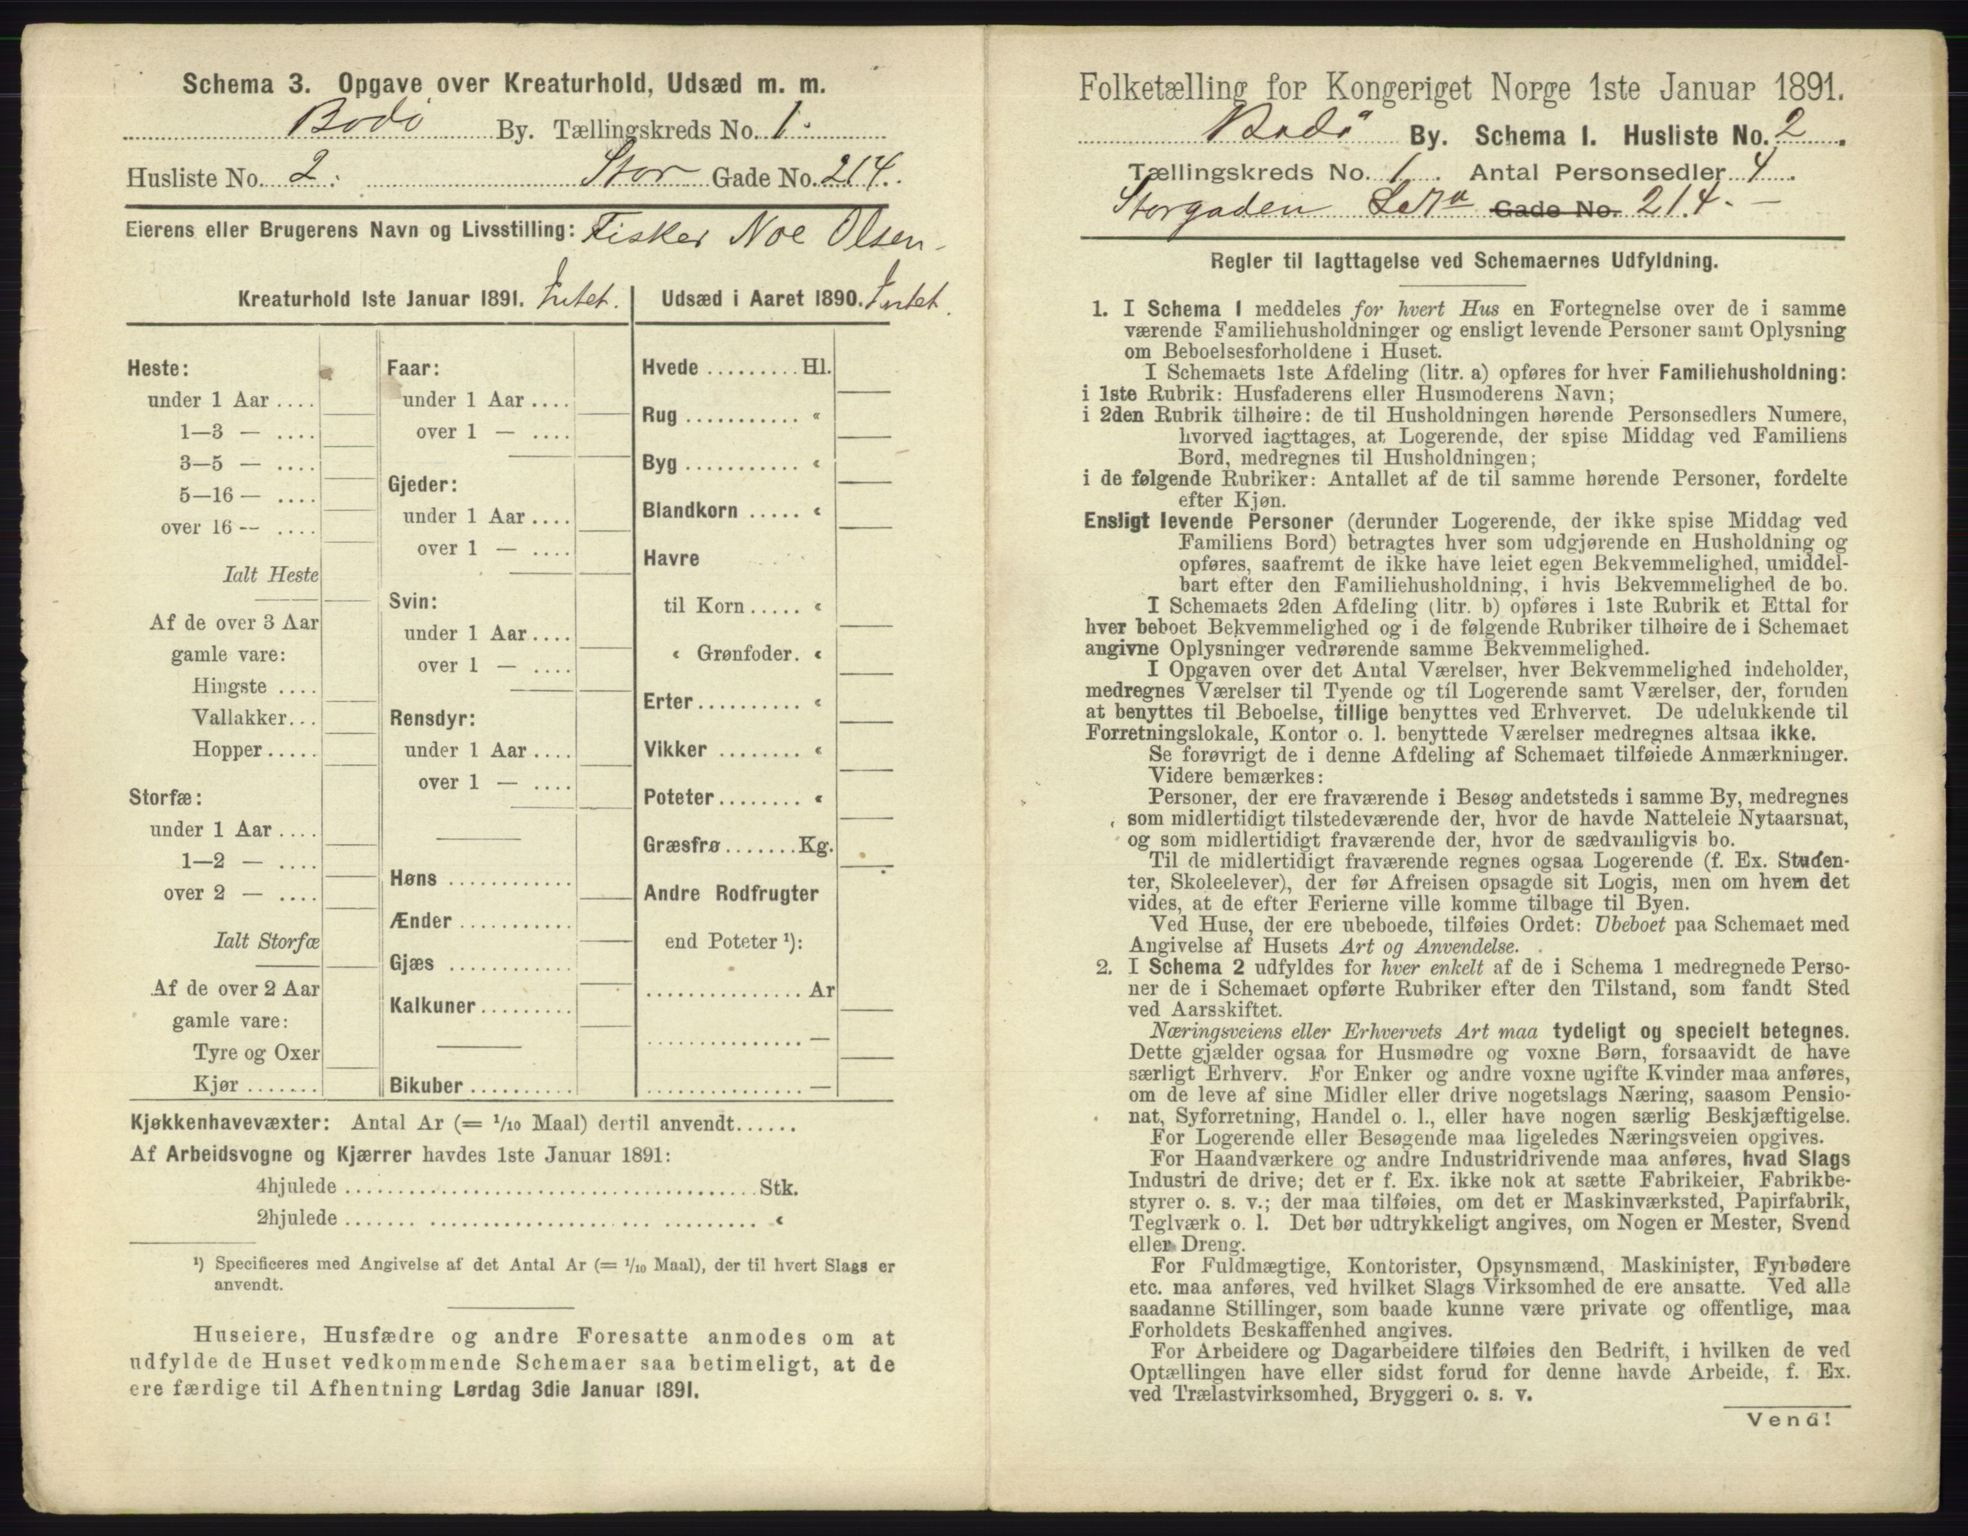 Schema 3. Opgave over Kreaturhold, Udsæd m. m.
Bodø By. Tællingskreds No. 1.
Husliste No. 2. Stor Gade No. 214.
Eierens eller Brugerens Navn og Livsstilling: Fisker Noe Olsen
Kreaturhold 1ste Januar 1891. Intet.
Heste:
under 1 Aar ....
1—3 — ....
3—5 — ....
5—16 — ....
over 16 — ....
Ialt Heste
Af de over 3 Aar
gamle vare:
Hingste ....
Vallakker...
Hopper.....
Storfæ:
under 1 Aar ....
1—2 — ....
over 2 — ....
Ialt Storfæ
Af de over 2 Aar
gamle vare:
Tyre og Oxer
Kjør .......
Faar:
under 1 Aar ....
over 1 — ....
Gjeder:
under 1 Aar ....
over 1 — ....
Svin:
under 1 Aar ....
over 1 — ....
Rensdyr:
under 1 Aar ....
over 1 — ....
Høns ............
Ænder ...........
Gjæs ............
Kalkuner.........
Bikuber ..........
Udsæd i Aaret 1890. Intet.
Hvede ......... Hl.
Rug ........... «
Byg ........... «
Blandkorn ..... «
Havre
til Korn ..... «
« Grønfoder. «
Erter.......... «
Vikker ........ «
Poteter........ «
Græsfrø ....... Kg.
Andre Rodfrugter
end Poteter ¹):
............... Ar
............... —
............... —
Kjøkkenhavevæxter: Antal Ar (= 1/10 Maal) dertil anvendt......
Af Arbeidsvogne og Kjærrer havdes 1ste Januar 1891:
4hjulede ........................................ Stk.
2hjulede ........................................ «
¹) Specificeres med Angivelse af det Antal Ar (= 1/10 Maal), der til hvert Slags er
anvendt.
Huseiere, Husfædre og andre Foresatte anmodes om at
udfylde de Huset vedkommende Schemaer saa betimeligt, at de
ere færdige til Afhentning Lørdag 3die Januar 1891.
Folketælling for Kongeriget Norge 1ste Januar 1891.
Bodø By. Schema I. Husliste No. 2.
Tællingskreds No. 1. Antal Personsedler 4.
Storgaden Gade No. 214.
Regler til Iagttagelse ved Schemaernes Udfyldning.
1. I Schema 1 meddeles for hvert Hus en Fortegnelse over de i samme
værende Familiehusholdninger og ensligt levende Personer samt Oplysning
om Beboelsesforholdene i Huset.
I Schemaets 1ste Afdeling (litr. a) opføres for hver Familiehusholdning:
i 1ste Rubrik: Husfaderens eller Husmoderens Navn;
i 2den Rubrik tilhøire: de til Husholdningen hørende Personsedlers Numere,
hvorved iagttages, at Logerende, der spise Middag ved Familiens
Bord, medregnes til Husholdningen;
i de følgende Rubriker: Antallet af de til samme hørende Personer, fordelte
efter Kjøn.
Ensligt levende Personer (derunder Logerende, der ikke spise Middag ved
Familiens Bord) betragtes hver som udgjørende en Husholdning og
opføres, saafremt de ikke have leiet egen Bekvemmelighed, umiddel-
bart efter den Familiehusholdning, i hvis Bekvemmelighed de bo.
I Schemaets 2den Afdeling (litr. b) opføres i 1ste Rubrik et Ettal for
hver beboet Bekvemmelighed og i de følgende Rubriker tilhøire de i Schemaet
angivne Oplysninger vedrørende samme Bekvemmelighed.
I Opgaven over det Antal Værelser, hver Bekvemmelighed indeholder,
medregnes Værelser til Tyende og til Logerende samt Værelser, der, foruden
at benyttes til Beboelse, tillige benyttes ved Erhvervet. De udelukkende til
Forretningslokale, Kontor o. l. benyttede Værelser medregnes altsaa ikke.
Se forøvrigt de i denne Afdeling af Schemaet tilføiede Anmærkninger.
Videre bemærkes:
Personer, der ere fraværende i Besøg andetsteds i samme By, medregnes
som midlertidigt tilstedeværende der, hvor de havde Natteleie Nytaarsnat,
og som midlertidigt fraværende der, hvor de sædvanligvis bo.
Til de midlertidigt fraværende regnes ogsaa Logerende (f. Ex. Studen-
ter, Skoleelever), der før Afreisen opsagde sit Logis, men om hvem det
vides, at de efter Ferierne ville komme tilbage til Byen.
Ved Huse, der ere ubeboede, tilføies Ordet: Ubeboet paa Schemaet med
Angivelse af Husets Art og Anvendelse.
2. I Schema 2 udfyldes for hver enkelt af de i Schema 1 medregnede Perso-
ner de i Schemaet opførte Rubriker efter den Tilstand, som fandt Sted
ved Aarsskiftet.
Næringsveiens eller Erhvervets Art maa tydeligt og specielt betegnes.
Dette gjælder ogsaa for Husmødre og voxne Børn, forsaavidt de have
særligt Erhverv. For Enker og andre voxne ugifte Kvinder maa anføres,
om de leve af sine Midler eller drive nogetslags Næring, saasom Pensio-
nat, Syforretning, Handel o. l., eller have nogen særlig Beskjæftigelse.
For Logerende eller Besøgende maa ligeledes Næringsveien opgives.
For Haandværkere og andre Industridrivende maa anføres, hvad Slags
Industri de drive; det er f. Ex. ikke nok at sætte Fabrikeier, Fabrikbe-
styrer o. s. v.; der maa tilføies, om det er Maskinværksted, Papirfabrik,
Teglværk o. l. Det bør udtrykkeligt angives, om Nogen er Mester, Svend
eller Dreng.
For Fuldmægtige, Kontorister, Opsynsmænd, Maskinister, Fyrbødere
etc. maa anføres, ved hvilket Slags Virksomhed de ere ansatte. Ved alle
saadanne Stillinger, som baade kunne være private og offentlige, maa
Forholdets Beskaffenhed angives.
For Arbeidere og Dagarbeidere tilføies den Bedrift, i hvilken de ved
Optællingen have eller sidst forud for denne havde Arbeide, f. Ex.
ved Trælastvirksomhed, Bryggeri o. s. v.
Vend!